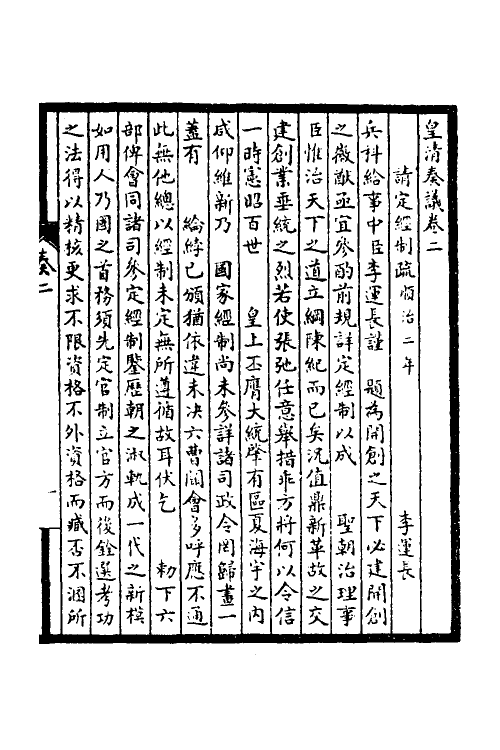 皇清奏議卷二
請定經制疏順治二年　李運長
兵科給事中臣李運長謹　題為開創之天下必建開創
之徽猷亟宜參酌前規詳定經制以成　聖朝治理事
臣惟治天下之道立綱陳紀而已矣況值鼎新革故之交
建創業垂統之烈若使張弛任意舉措乖方將何以令信
一時憲昭百世　皇上丕膺大統肇有區夏海宇之內
咸仰維新乃　國家經制尚未參詳諸司政令罔歸畫一
蓋有　綸綍已頒猶依違未決六曹關會多呼應不通
此無他總以經制未定無所遵循故耳伏乞　勅下六
部俾會同諸司參定經制鑒歷朝之淑軌成一代之新模
如用人乃國之首務須先定官制立官方而後銓選考功
之法得以精核更求不限資格不外資格而臧否不溷所
二